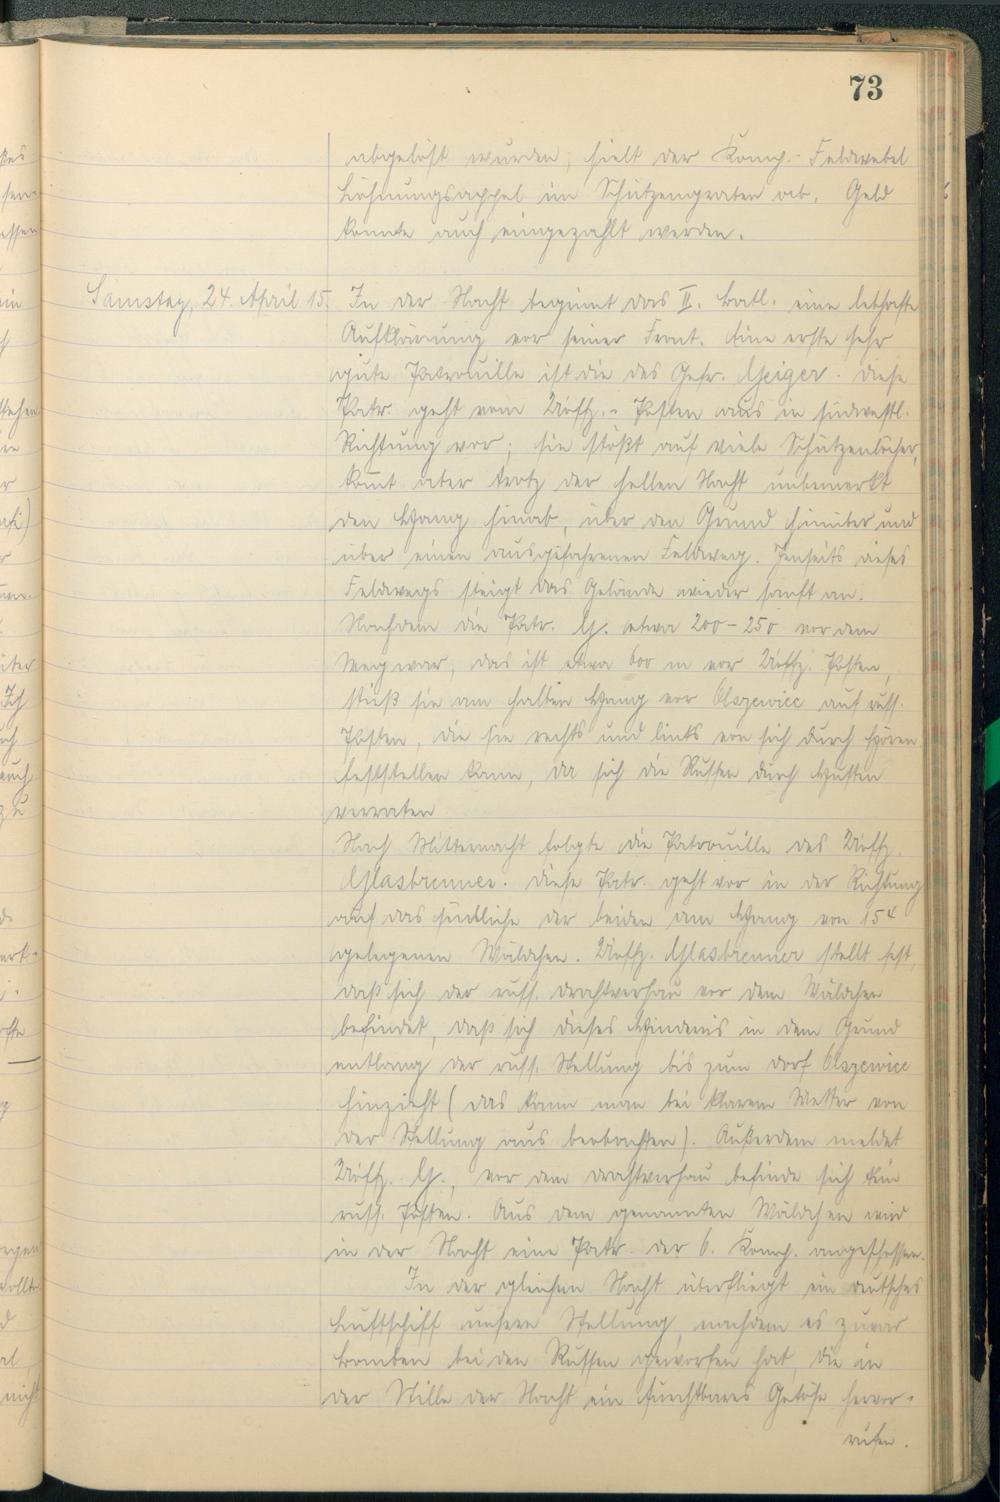 73
abgelöst wurden, hielt der Komp.-Feldwebel
Löhnungsappel im Schützengraben ab, Geld
konnte auch eingezahlt werden.
Samstag, 24. April 15. In der Nacht beginnt das II. Batl. eine lebhafte
Aufklärung vor seiner Front. Eine erste sehr
gute Patrouille ist die des Gefr. Geiger. Diese
Patr. geht vom Uoffz.-Posten aus in südwestl.
Richtung vor; sie stößt auf viele Schützenlöcher,
komt aber trotz der hellen Nacht unbemerkt
den Hang hinab, über den Grund hinüber und
über einen ausgefahrenen Feldweg. Jenseits dieses
Feldwegs steigt das Gelände wieder sanft an.
Nachdem die Patr. G. etwa 200-250 vor dem
Weg war, das ist etwa 600 m vor Uoffz. Posten,
stieß sie am halben Hang vor Olszewiec auf russ.
Posten, die sie rechts und links von sich durch Hören
feststellen kann, da sich die Russen durch Husten
verraten
Nach Mitternacht folgte die Patrouille des Uoffz.
Glasbrenner. Diese Patr. geht vor in der Richtung
auf das südliche der beiden am Hang von 154
gelegenen Wäldchen. Uoffz. Glasbrenner stellt fest,
daß sich der russ. Drahtverhau vor dem Wäldchen
befindet, daß sich dieses Hindernis in dem Grund
entlang der russ. Stellung bis zum Dorf Olszewiec
hinzieht (das kann man bei klarem Wetter von
der Stellung aus beobachten). Außerdem meldet
Uoffz. G., vor dem Drahtverhau befinde sich kein
russ. Posten. Aus dem genannten Wäldchen wird
in der Nacht eine Patr. der 6. Komp. angeschossen.
In der gleichen Nacht überfliegt ein deutsches
Luftschiff unsere Stellung, nachdem es zuvor
Bomben bei den Russen geworfen hat, die in
der Stille der Nacht ein furchtbares Getöse hervor-
rufen.